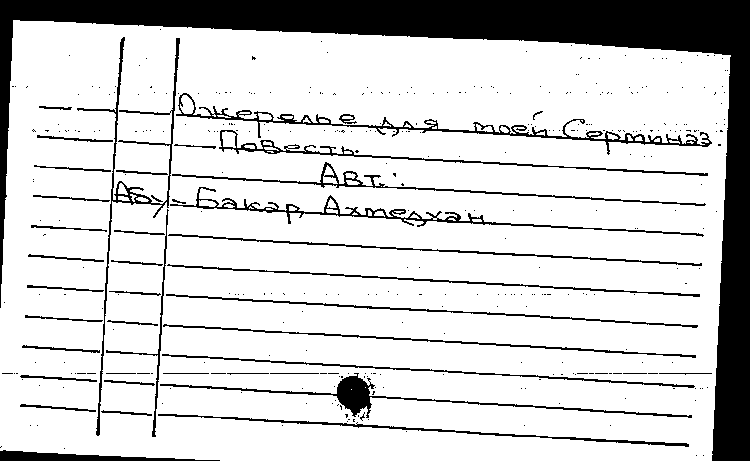 Ожерелье для моей Серминаз.
Повесть.
Авт.:
Абу-Бакар, Ахмедхан